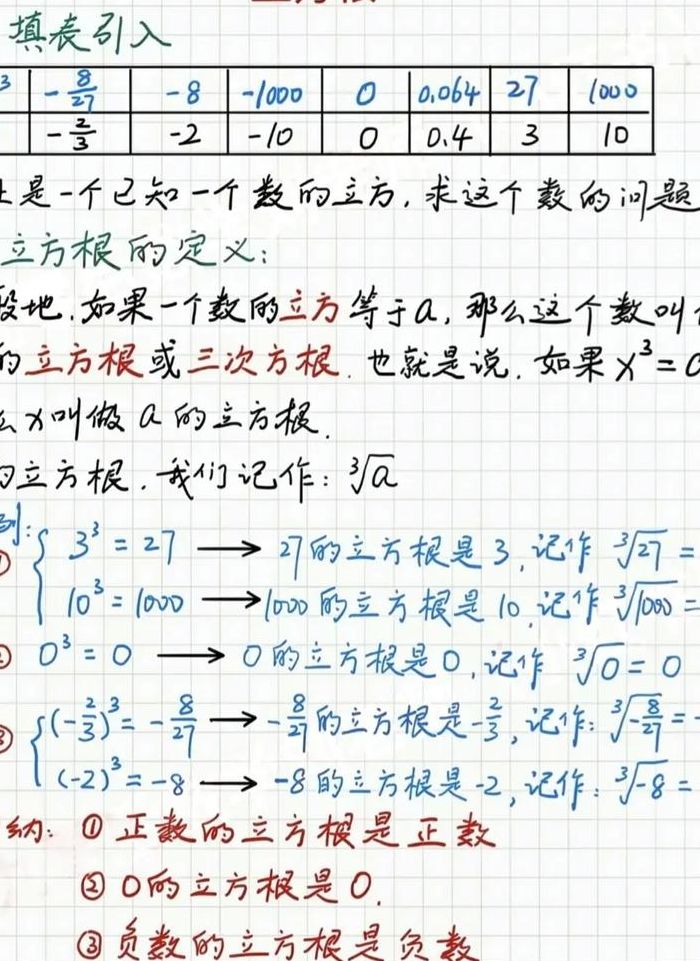 填表引入
3 -8/27 -8 -1000 0 0.064 27 1000
-2/3 -2 -10 0 0.4 3 10
是一个已知一个数的立方,求这个数的问题
立方根的定义:
般地.如果一个数的立方等于a,那么这个数叫
的立方根或三次方根.也就是说.如果x³=
么x叫做a的立方根.
的立方根.我们记作:∛a
例:
① 3³=27 → 27的立方根是3,记作 ∛27 =
10³=1000 → 1000的立方根是10,记作 ∛1000 =
② 0³=0 → 0的立方根是0,记作 ∛0 = 0
③ (-2/3)³=-8/27 → -8/27的立方根是-2/3,记作:∛-8/27 =
(-2)³=-8 → -8的立方根是-2,记作:∛-8 =
纳: ① 正数的立方根是正数
② 0的立方根是0.
③ 负数的立方根是负数